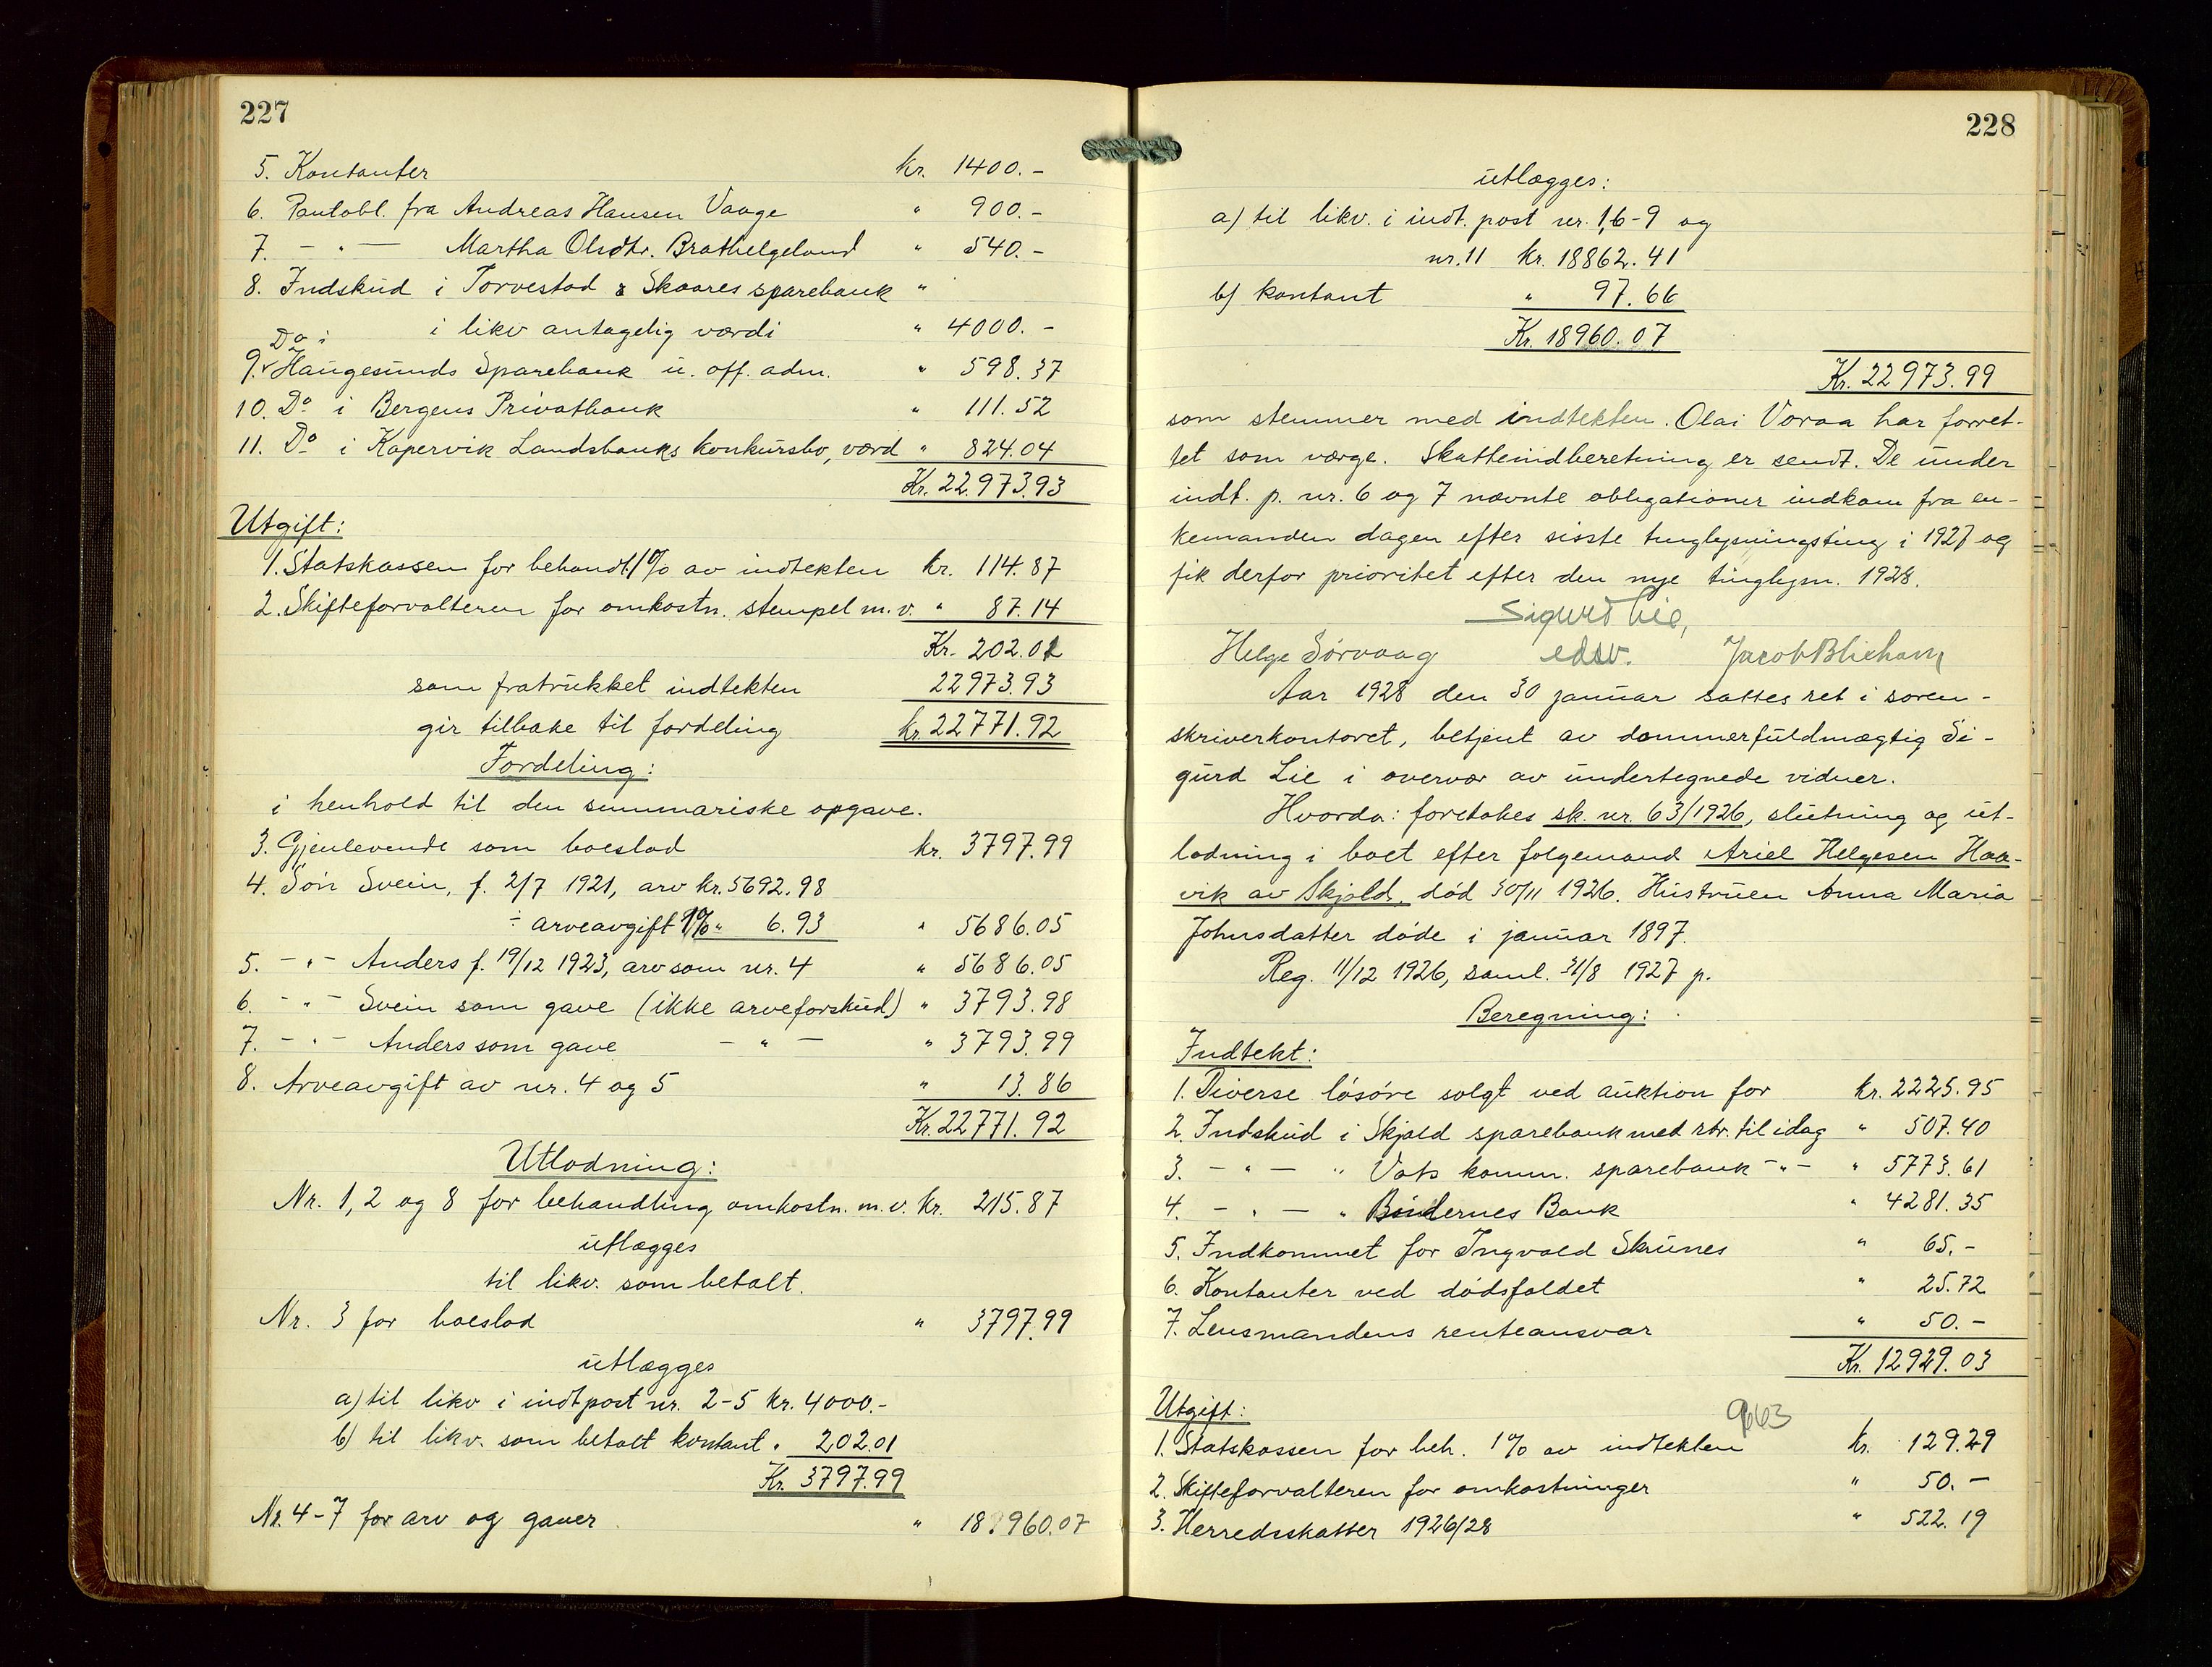 227
5. Kontanter kr. 1400.-
6. Pantobl. fra Andreas Hansen Vaage " 900.-
7. - " - Martha Olsdtr. Brathelgeland " 540.-
8. Indskud i Torvestad & Skaares sparebank "
i likv antagelig værdi " 4000.-
Do i
9. Haugesunds Sparebank u. off. adm. " 598.37
10. Do i Bergens Privatbank " 111.52
11. Do i Kopervik Landsbanks konkursbo, værd " 824.04
Kr. 22.973.93
Utgift:
1. Statskassen for behandl. 1% av indtekten kr. 114.87
2. Skifteforvalteren for omkostn. stempel m.v. " 87.14
Kr. 202.01
som fratrukket indtekten 22973.93
gir tilbake til fordeling kr. 22771.92
Fordeling:
i henhold til den summariske opgave.
3. Gjenlevende som boeslod kr. 3797.99
4. Søn Svein, f. 2/7 1921, arv kr. 5692.98
÷ arveavgift 1% " 6.93 " 5686.05
5. - " - Anders f. 19/12 1923, arv som nr. 4 " 5686.05
6. - " - Svein som gave (ikke arveforskud) " 3793.98
7. - " - Anders som gave - " - " 3793.99
8. Arveavgift av nr. 4 og 5 " 13.86
Kr. 22771.92
Utlodning:
Nr. 1, 2 og 8 for behandling omkostn. m.v. kr. 215.87
utlægges
til likv. som betalt.
Nr. 3 for boeslod " 3797.99
utlægges
a) til likv i indt post nr. 2-5 kr. 4000.-
b) til likv. som betalt kontant " 202.01
Kr. 3797.99
Nr. 4-7 for arv og gaver " 18960.07
228
utlægges:
a) til likv. i indt. post nr. 1, 6-9 og
nr. 11 kr. 18862.41
b) kontant " 97.66
Kr. 18960.07
Kr. 22973.99
som stemmer med indtekten. Olai Voraa har forret-
tet som værge. Skatteindberetning er sendt. De under
indt. p. nr. 6 og 7 nævnte obligationer indkom fra en-
kemanden dagen efter sisste tinglysningsting i 1927 og
fik derfor prioritet efter den nye tinglysn. 1928.
Sigurd Lie,
Helge Sørvaag edsv. Jacob Blikhavn
Aar 1928 den 30 januar sattes ret i soren-
skriverkontoret, betjent av dommerfuldmægtig Si-
gurd Lie i overvær av undertegnede vidner.
Hvorda: foretokes sk. nr. 63/1926, slutning og ut-
lodning i boet efter følgemand Ariel Helgesen Haa-
vik av Skjold, død 30/11 1926. Hustruen Anna Maria
Johnsdatter døde i januar 1897.
Reg. 11/12 1926, saml. 31/8 1927 p.
Beregning:
Indtekt:
1. Diverse løsøre solgt ved auktion for kr. 2225.95
2. Indskud i Skjold sparebank med rtr. til idag " 507.40
3. - " - " Vats komm. sparebank - " - " 5773.61
4. - " - " Bøndernes Bank " 4281.35
5. Indkommet for Ingvald Skrunes " 65.-
6. Kontanter ved dødsfaldet " 25.72
7. Lensmandens renteansvar " 50.-
Kr. 12929.03
Utgift:
963
1. Statskassen for beh. 1% av indtekten kr. 129.29
2. Skifteforvalteren for omkostninger " 50.-
3. Herredsskatter 1926/28 " 522.19